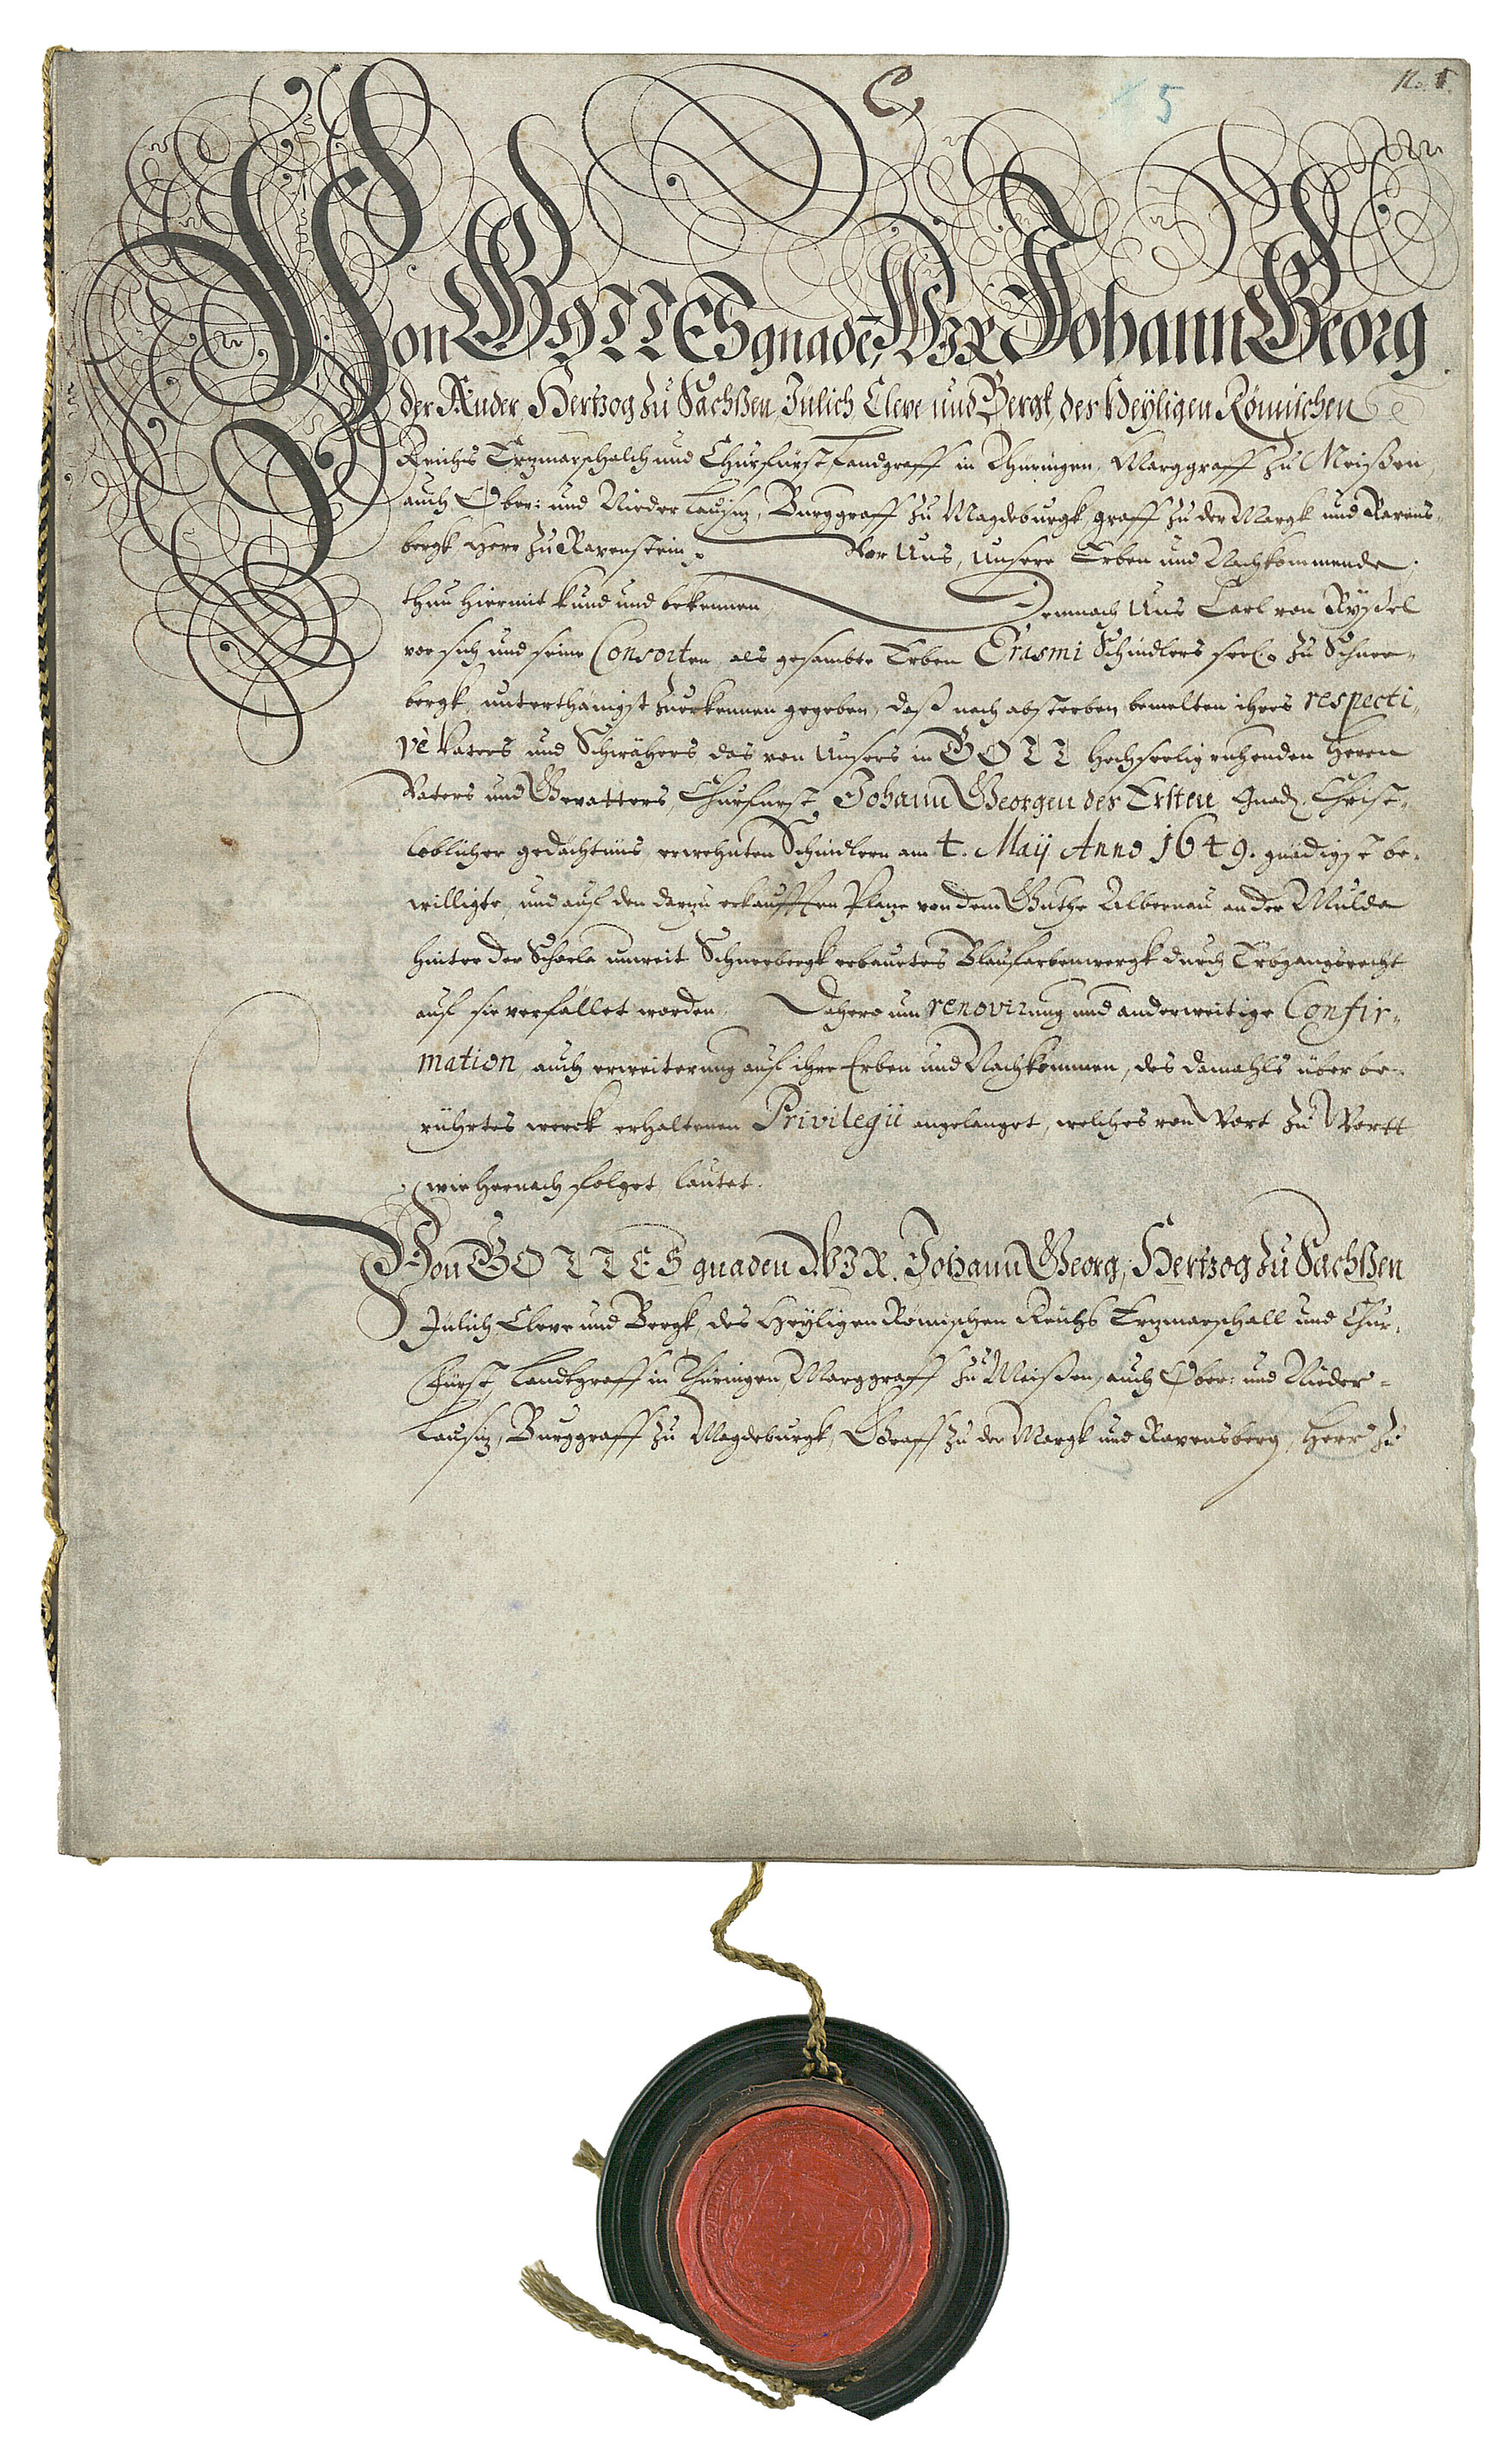 C
5
No. 1.
Von GOTTES gnadē, WIR Johann Georg
der Ander, Hertzog zu Sachßen, Jülich, Cleve und Bergk, des Heyligen Römischen
Reichs Ertzmarschalch und Churfürst, Landgraff in Thüringen, Marggraff zu Meißen,
auch Ober: und Nieder Lausitz, Burggraff zu Magdeburgk, graff zu der Margk und Ravens-
bergk, Herr zu Ravenstein, Vor Uns, Unsere Erben und Nachkommende,
thun hiermit kund und bekennen, Demnach Uns Carl von Ryßel
vor sich und seine Consorten, als gesambte Erben Erasmi Schindlers seel. zu Schnee-
bergk, unterthänigst zuerkennen gegeben, daß nach absterben bemelten ihres respecti-
vè Vaters und Schwähers das von Unsers in GOTT Hochseelig ruhenden Herrn
Vaters und Gevatters, Churfürst Johann Georgen des Ersten, Gnad. Christ-
löblicher gedächtnüs, erwehnten Schindlern am 4. Maij Anno 1649. gnädigst be-
willigte, und auf den darzu erkaufften Platze von dem Guthe Albernau an der Mulda
hinter der Schorla unweit Schneebergk erbauetes Blaufarbenwergk durch Erbgangsrecht
auf sie verfället worden, Dahero um renovirung und anderweitige Confir-
mation, auch erweiterung auf ihre Erben und Nachkommen, des damahls über be-
rührtes werck erhaltenen Privilegii angelanget, welches von Wort zu Wortt
wie hernach folget, lautet.
Von GOTTES gnaden WIR. Johann Georg, Hertzog zu Sachßen
Jülich, Cleve und Bergk, des Heyligen Römischen Reichs Ertzmarschall und Chur-
Fürst, Landtgraff in Thüringen, Marggraff zu Meißen, auch Ober: und Nieder-
Lausitz, Burggraff zu Magdeburgk, Graff zu der Margk und Ravensberg, Herr zu